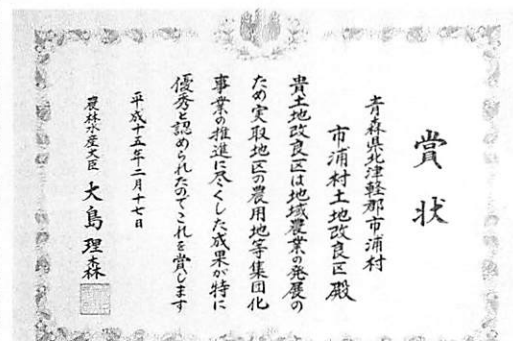 賞状
青森県北津軽郡市浦村
市浦村土地改良区殿
貴土地改良区は地域農業の発展の
ため実取地区の農用地等集団化
事業の推進に尽くした成果が特に
優秀と認められたのでこれを賞します
平成十五年二月十七日
農林水産大臣 大島理森